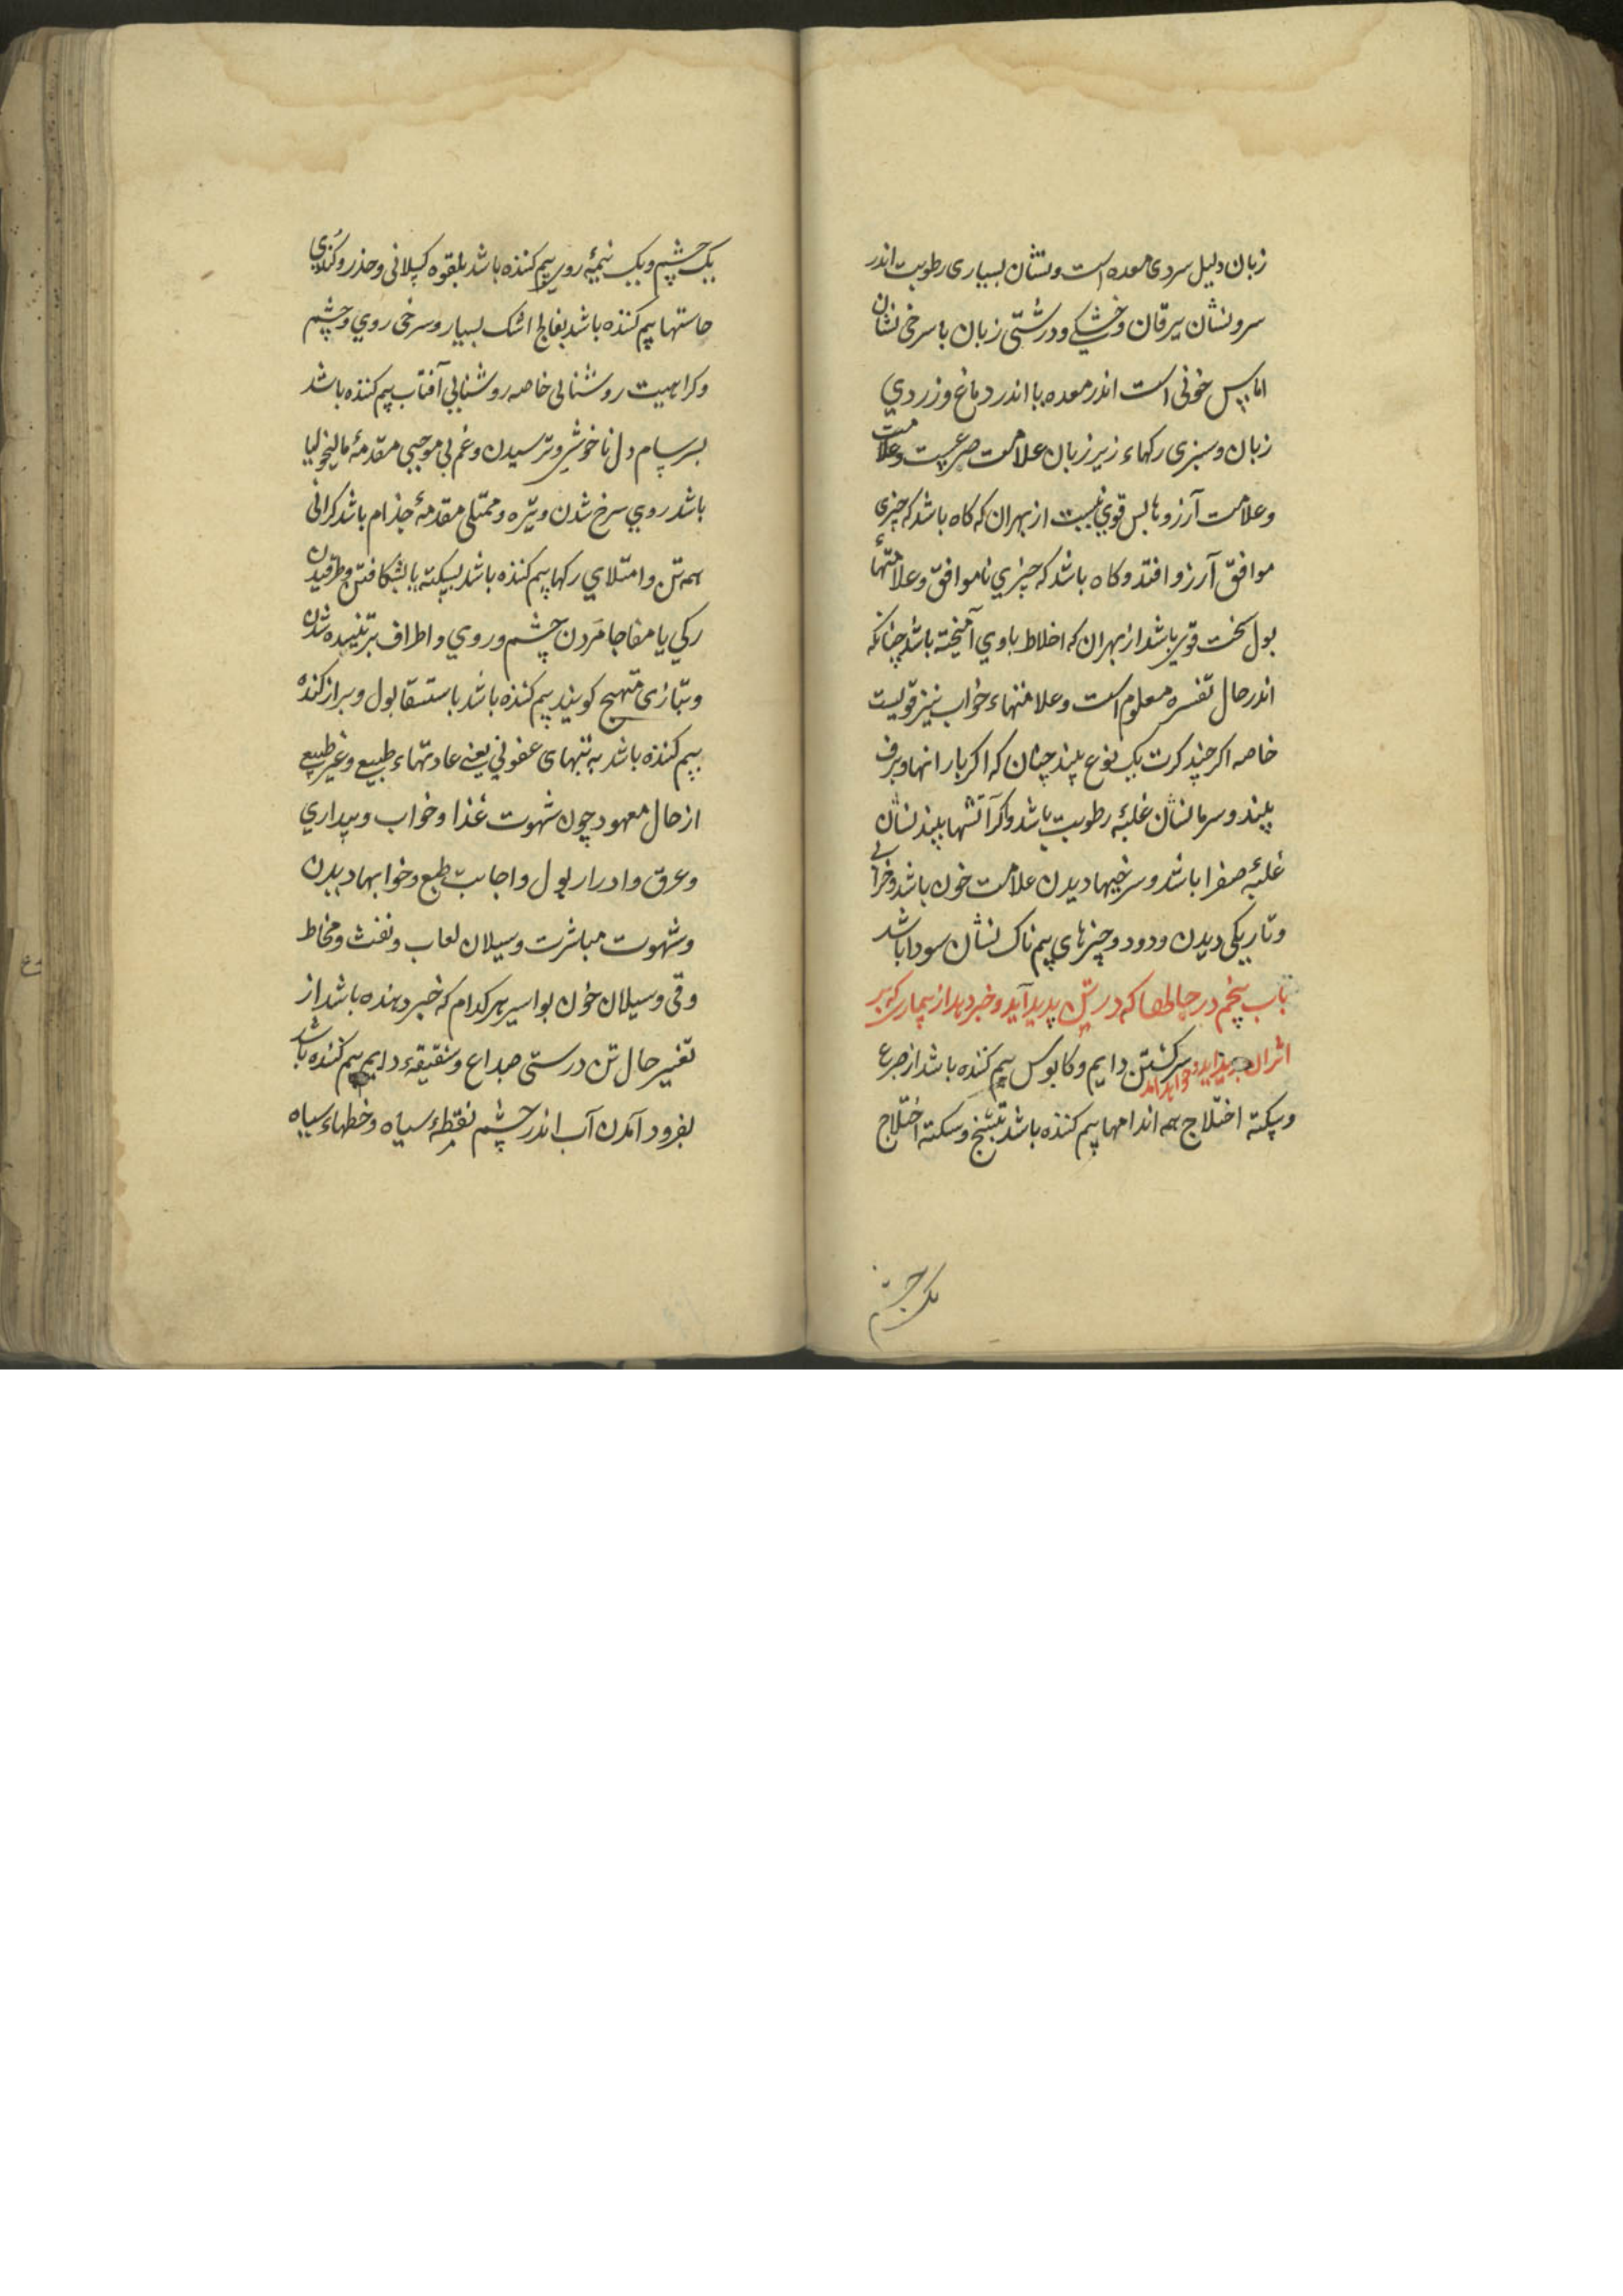 زبان دلیل سردی معده است و نشان بسیاری رطوبت اندر
سر و نشان یرقان و خشکی و درشتی زبان با سرخی نشان
اماس خونی است اندر معده یا اندر دماغ و زردي
زبان و سبزی رکهاء زیر زبان علامت صرعیست و علامت
وعلامت آرزوها بس قوي نیست از بهران که کاه باشد که چیزی
موافق آرزو افتد و کاه باشد که چیزي ناموافق و علامتهاء
بول سخت قوی باشد از بهران که اخلاط باوي آمیخته باشد چنانکه
اندر حال تفسره معلوم است و علامتهاء خواب نیز قویست
خاصه اکر چند کرت یک نوع بیند چنان که اکر بارانها و برف
بیند و سرما نشان غلبهٔ رطوبت باشد و کر آتشها بیند نشان
غلبهٔ صفرا باشد و سرخیها دیدن علامت خون باشد و خرابی
و تاریکی دیدن و دود و چیزهای بیم ناک نشان سودا باشد
باب پنجم در حالطها که در تن پدید آید و خبر دهد از بیماری که بر
اثر ان پدید آید و خواهد آمد سرکشتن دایم و کابوس بیم کننده باشد از صرع
و سکته اختلاج همه اندامها بیم کننده باشد بتشنج و سکته اختلاج
یک چشم
یک چشم و یک نیمهٔ روی بیم کننده باشد بلقوه کسلانی و خدر و کُندي
حاستها بیم کننده باشد بفالج اشک بسیار و سرخی روي و چشم
و کراهیت روشنایی خاصه روشنایی آفتاب بیم کننده باشد
بسرسام دل ناخوشی و ترسیدن و غم بی موجبی مقدمهٔ مالیخولیا
باشد روي سرخ شدن و تیره و ممتلی مقدمهٔ جذام باشد کرانی
همه تن و امتلاي رکها بیم کننده باشد بسکته یا بشکافتن و طرقیدن
رکي یا مفاجا مَردن چشم و روي و اطراف برتنیده شدن
و بتازی متهبج کویند بیم کننده باشد باستسقا بول و براز کنده
بیم کننده باشد به تبهای عفوني یعنی عادتهاء طبیع و غیر طبیع
از حال معهود چون شهوت غذا و خواب و بیداري
و عرق و ادرار بول و اجابت طبع و خوابها دیدن
و شهوت مباشرت و سیلان لعاب و نفث و مخاط
و قی و سیلان خون بواسیر هر کدام که خبر دهنده باشد از
تغییر حال تن درستی صداع و شقیقهء دایم بیم کننده باشد
بفرود آمدن آب اندر چشم نقطهٔ سیاه و خطهاء سیاه